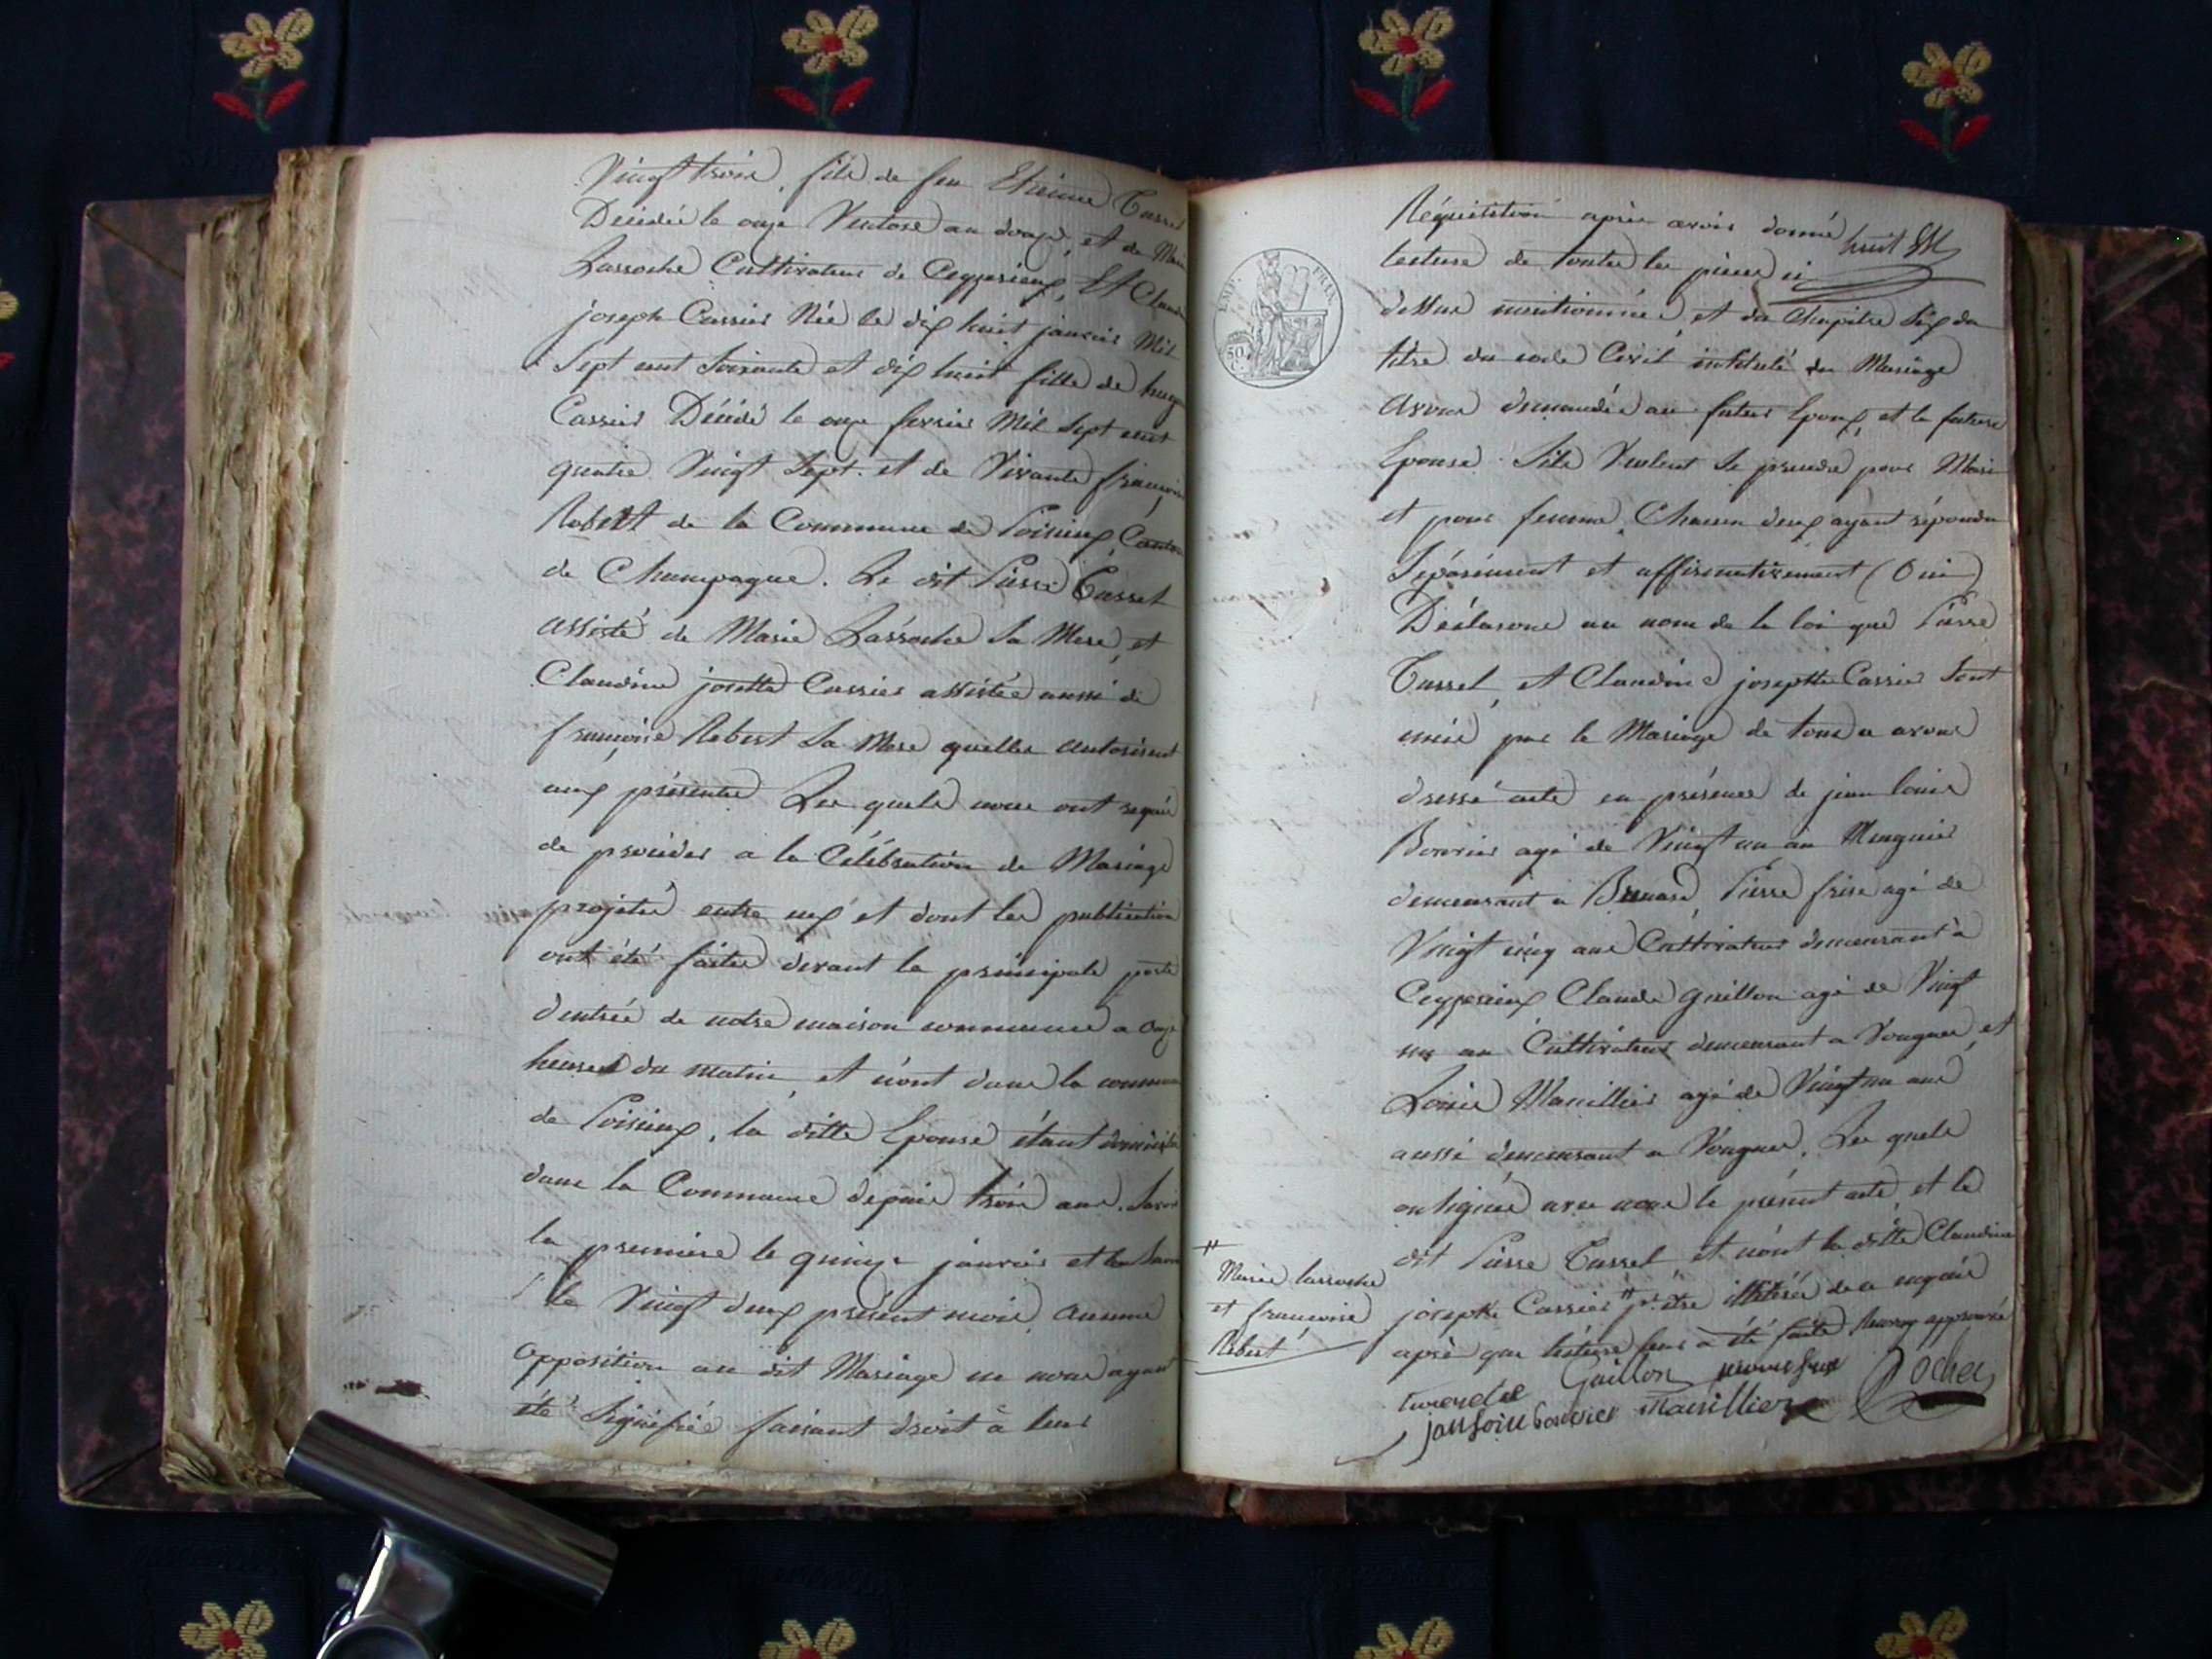 Vingt trois, fils de feu Etienne Tussel
Décédé le onze Ventose an douze, et de Marie
Lassoche Cultivateur de Ceyzerieux, Et Claudine
joseph Cassier Née le dix huit janvier Mil
Sept cent Soixante et dix huit fille de hugue
Cassier Décédé le onze fevrier Mil Sept cent
quatre Vingt Sept. et de Vivante françoise
Robert de la Commune de Poisieux, Canton
de Champagne. Le dit Pierre Tussel
assisté de Marie Lassoche Sa Mere, et
Claudine josette Cassier assistée aussi de
françoise Robert Sa Mere quelles autorisent
aux présente Les quels nous ont requis
de proceder a la Célébration de Mariage
projetté entre eux et dont les publication
ont été faites devant la principale porte
d'entrée de notre maison commune a onze
heures du matin, et n'ont dans la commune
de Poisieux, la ditte Epouse étant domiciliée
dans la Commune depuis trois ans. Savoir
la premiere le quinze janvier et la
le Vingt deux présent mois, aucune
opposition au dit Mariage ne nous ayant
été Signifiée faisant droit à leur
huit
Réquisition après avoir donné
lecture de toutes les pieces ci
dessus mentionnées, et du Chapitre Six du
titre du code Civil intitulé du Mariage
avons demandé au futur Epoux, et la future
Epouse S'ils Veulent Se prendre pour Mari
et pour femme, Chacun deux ayant répondu
Séparément et affirmativement (Oui)
Déclarons au nom de la loi que Pierre
Tussel, et Claudine josephte Cassier Sont
unis par le Mariage de tous a avons
dressé acte en présence de jean louis
Bovrier agé de Vingt un an Meugnier
demeurant a Pierre frise agé de
Vingt cinq ans Cultivateur demeurant à
Ceyzerieux Claude guillon agé de Vingt
un an Cultivateur demeurant a Vongnes, et
Louis Marillier agé de Vingt un ans
aussi demeurant a Vongnes, Les quels
on Signés avec nous le présent acte, et le
dit Pierre Tussel, et n'ont la ditte Claudine
josephte Cassier # pr etre illitérée de a requis
après que lecture leur a été faite approuvé
#
Marie lassoche
et françoise
Robert
Guillon Rochex
Marillier